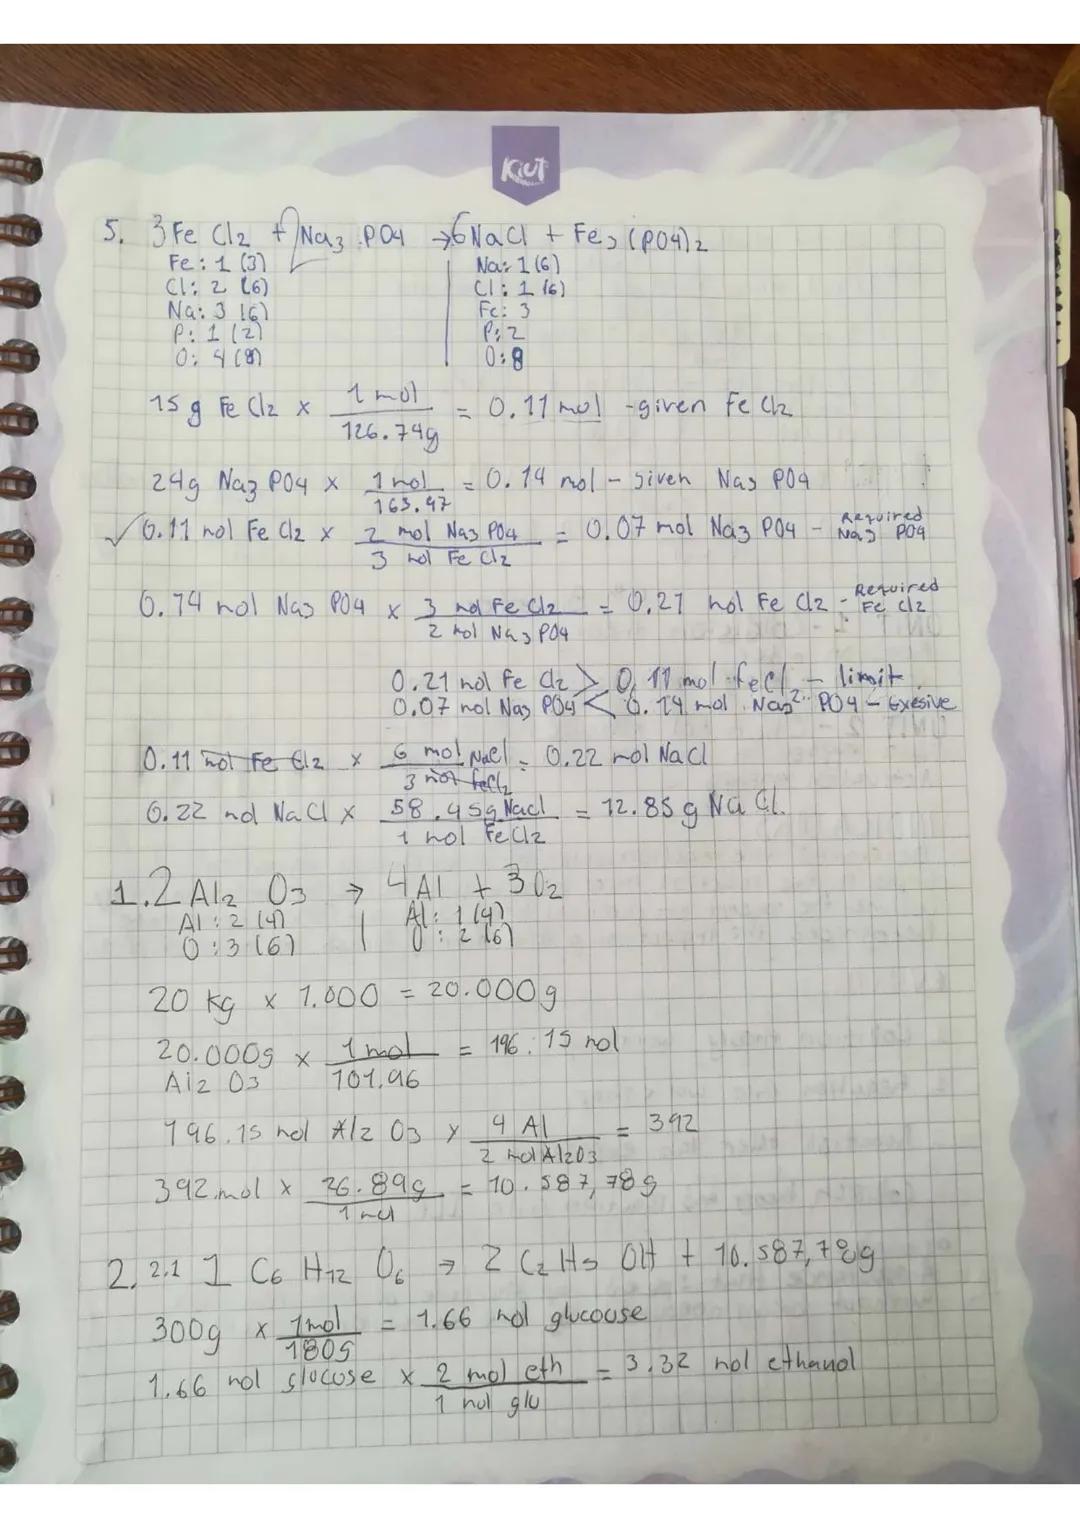 Kiut
5. 3 Fe Cl2 + 2 Na3 PO4 → 6 NaCl + Fe3 (PO4)2
Fe: 1 (3) Na: 1 (6)
Cl: 2 (6) Cl: 1 (6)
Na: 3 (6) Fe: 3
P: 1 (2) P: 2
O: 4 (8) O: 8
15 g Fe Cl2 x 1 mol / 126.74g = 0.11 mol - given Fe Cl2
24g Na3 PO4 x 1 mol / 163.97 = 0.14 mol - given Na3 PO4
✓ 0.11 mol Fe Cl2 x 2 mol Na3 PO4 / 3 mol Fe Cl2 = 0.07 mol Na3 PO4 - Required Na3 PO4
0.14 mol Na3 PO4 x 3 mol Fe Cl2 / 2 mol Na3 PO4 = 0.21 mol Fe Cl2 - Required Fe Cl2
0.21 mol Fe Cl2 > 0.11 mol FeCl2 - limit
0.07 mol Na3 PO4 < 0.14 mol Na3 PO4 - Exesive
0.11 mol Fe Cl2 x 6 mol NaCl / 3 mol FeCl2 = 0.22 mol NaCl
0.22 mol NaCl x 58.45g NaCl / 1 mol FeCl2 = 12.85 g NaCl.
1. 2 Al2 O3 → 4 Al + 3 O2
Al: 2 (4) Al: 1 (4)
O: 3 (6) O: 2 (6)
20 kg x 1.000 = 20.000g
20.000g Al2 O3 x 1 mol / 101.96 = 196.15 mol
196.15 mol Al2 O3 x 4 Al / 2 mol Al2O3 = 392
392 mol x 26.89g / 1 mol = 10.587,78g
2. 2.1 1 C6 H12 O6 → 2 C2 H5 OH + 10.587,78g
300g x 1mol / 180g = 1.66 mol glucouse
1.66 mol glucose x 2 mol eth / 1 mol glu = 3.32 mol ethanol